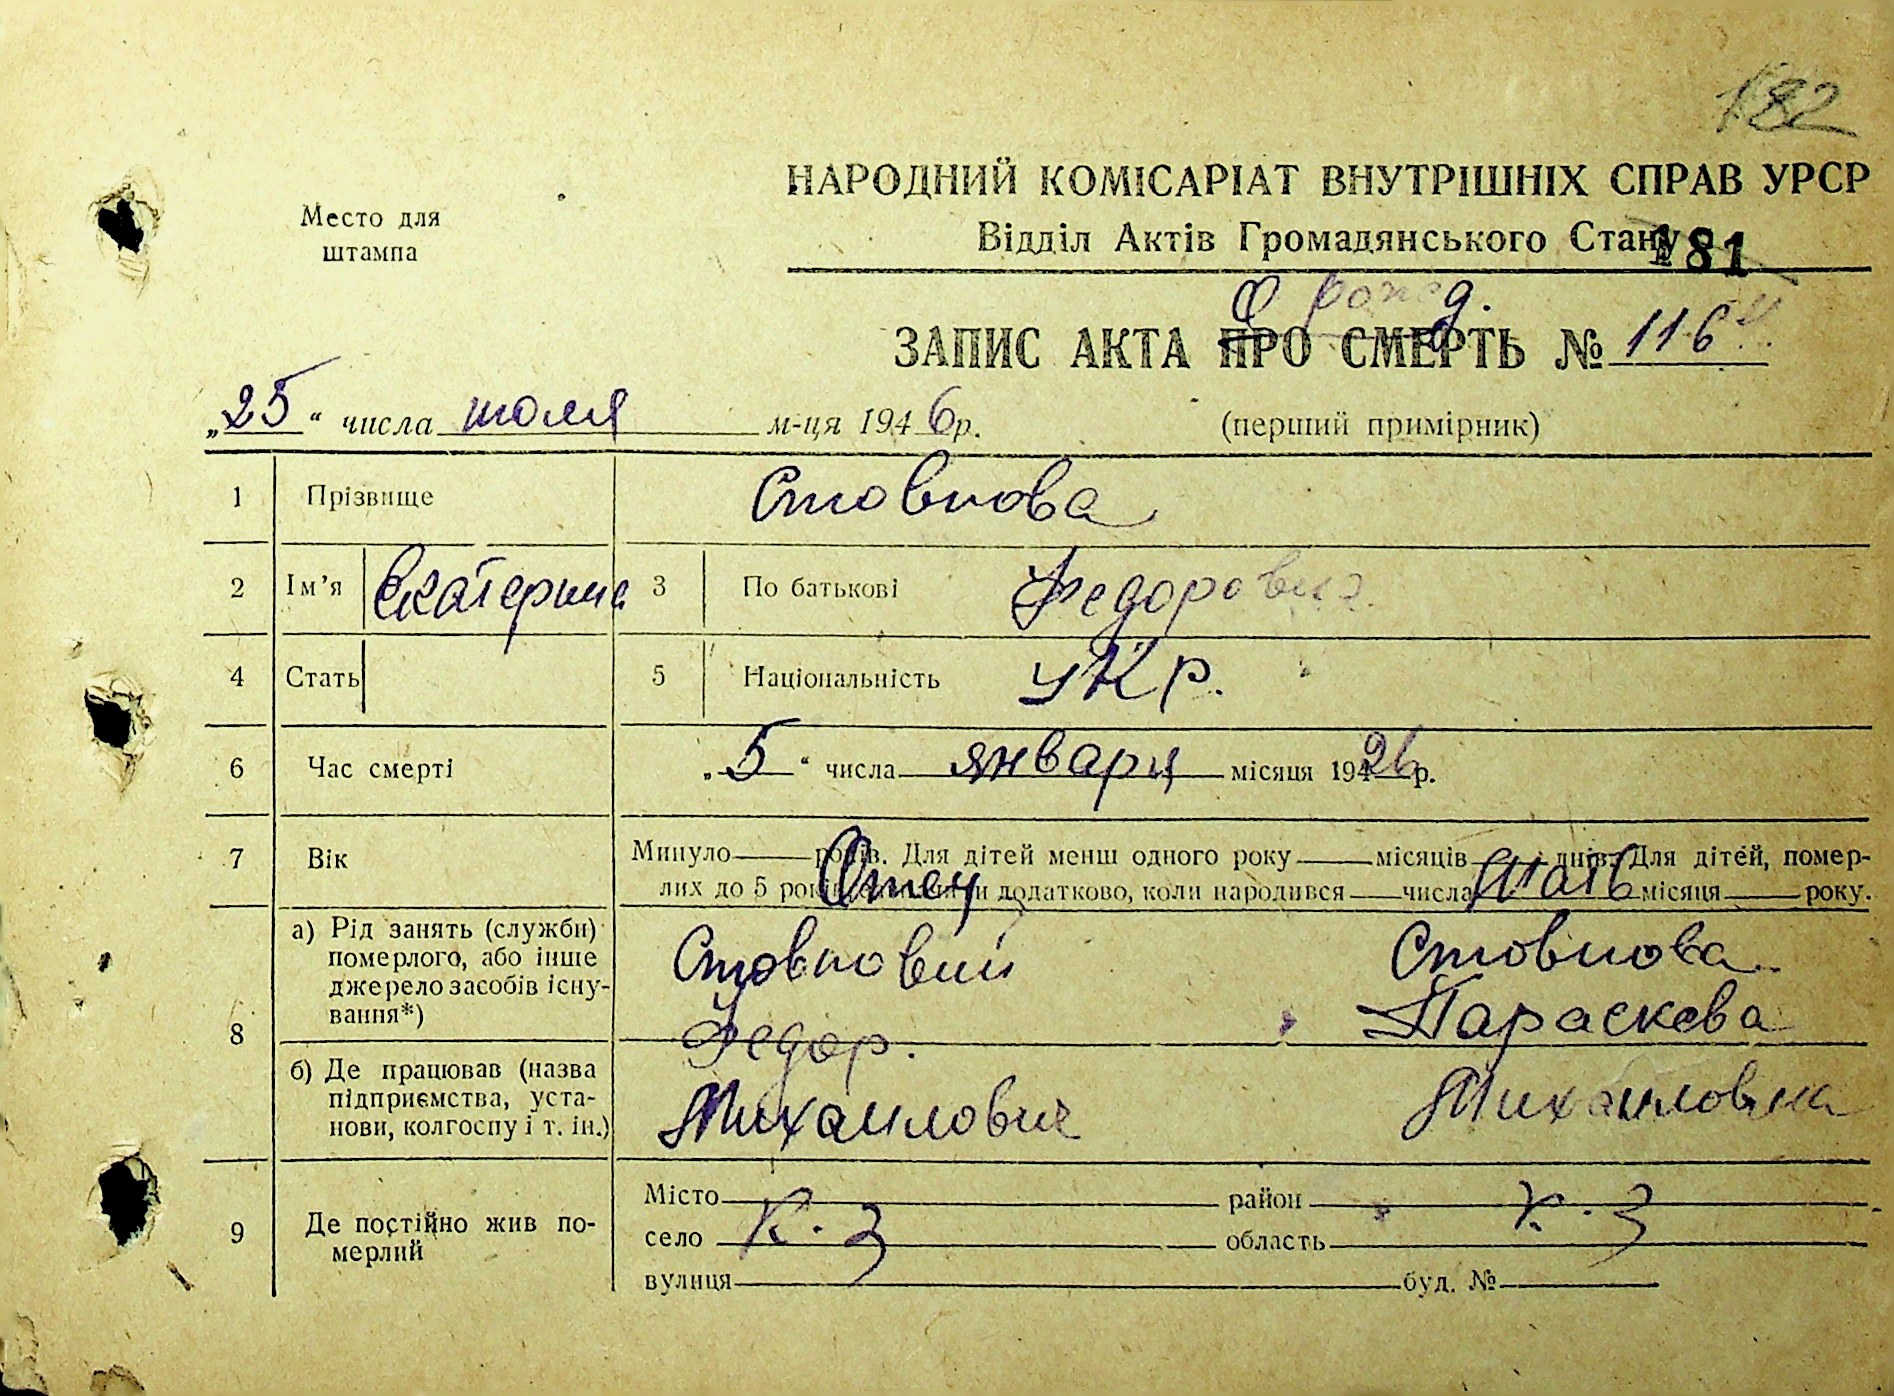 182
НАРОДНИЙ КОМІСАРІАТ ВНУТРІШНІХ СПРАВ УРСР
Место для
штампа
Відділ Актів Громадянського Стану
181
О рожд.
ЗАПИС АКТА ПРО СМЕРТЬ № 116
„25“ числа июля м-ця 1946р. (перший примірник)
1 Прізвище Стовпова
2 Ім’я Екатерина 3 По батькові Федоровна
4 Стать 5 Національність укр.
6 Час смерті „5“ числа января місяця 1926р.
7 Вік Минуло років. Для дітей менш одного року місяців днів. Для дітей, помер-
лих до 5 років додатково, коли народився числа місяця року.
Отец Мать
8 а) Рід занять (служби) померлого, або інше джерело засобів існування*)
Стовповий Стовпова
Федор. Параскева
б) Де працював (назва підприємства, установи, колгоспу і т. ін.)
Михайлович Михайловна
9 Де постійно жив померлий
Місто район
село К. З область К. З
вулиця буд. №